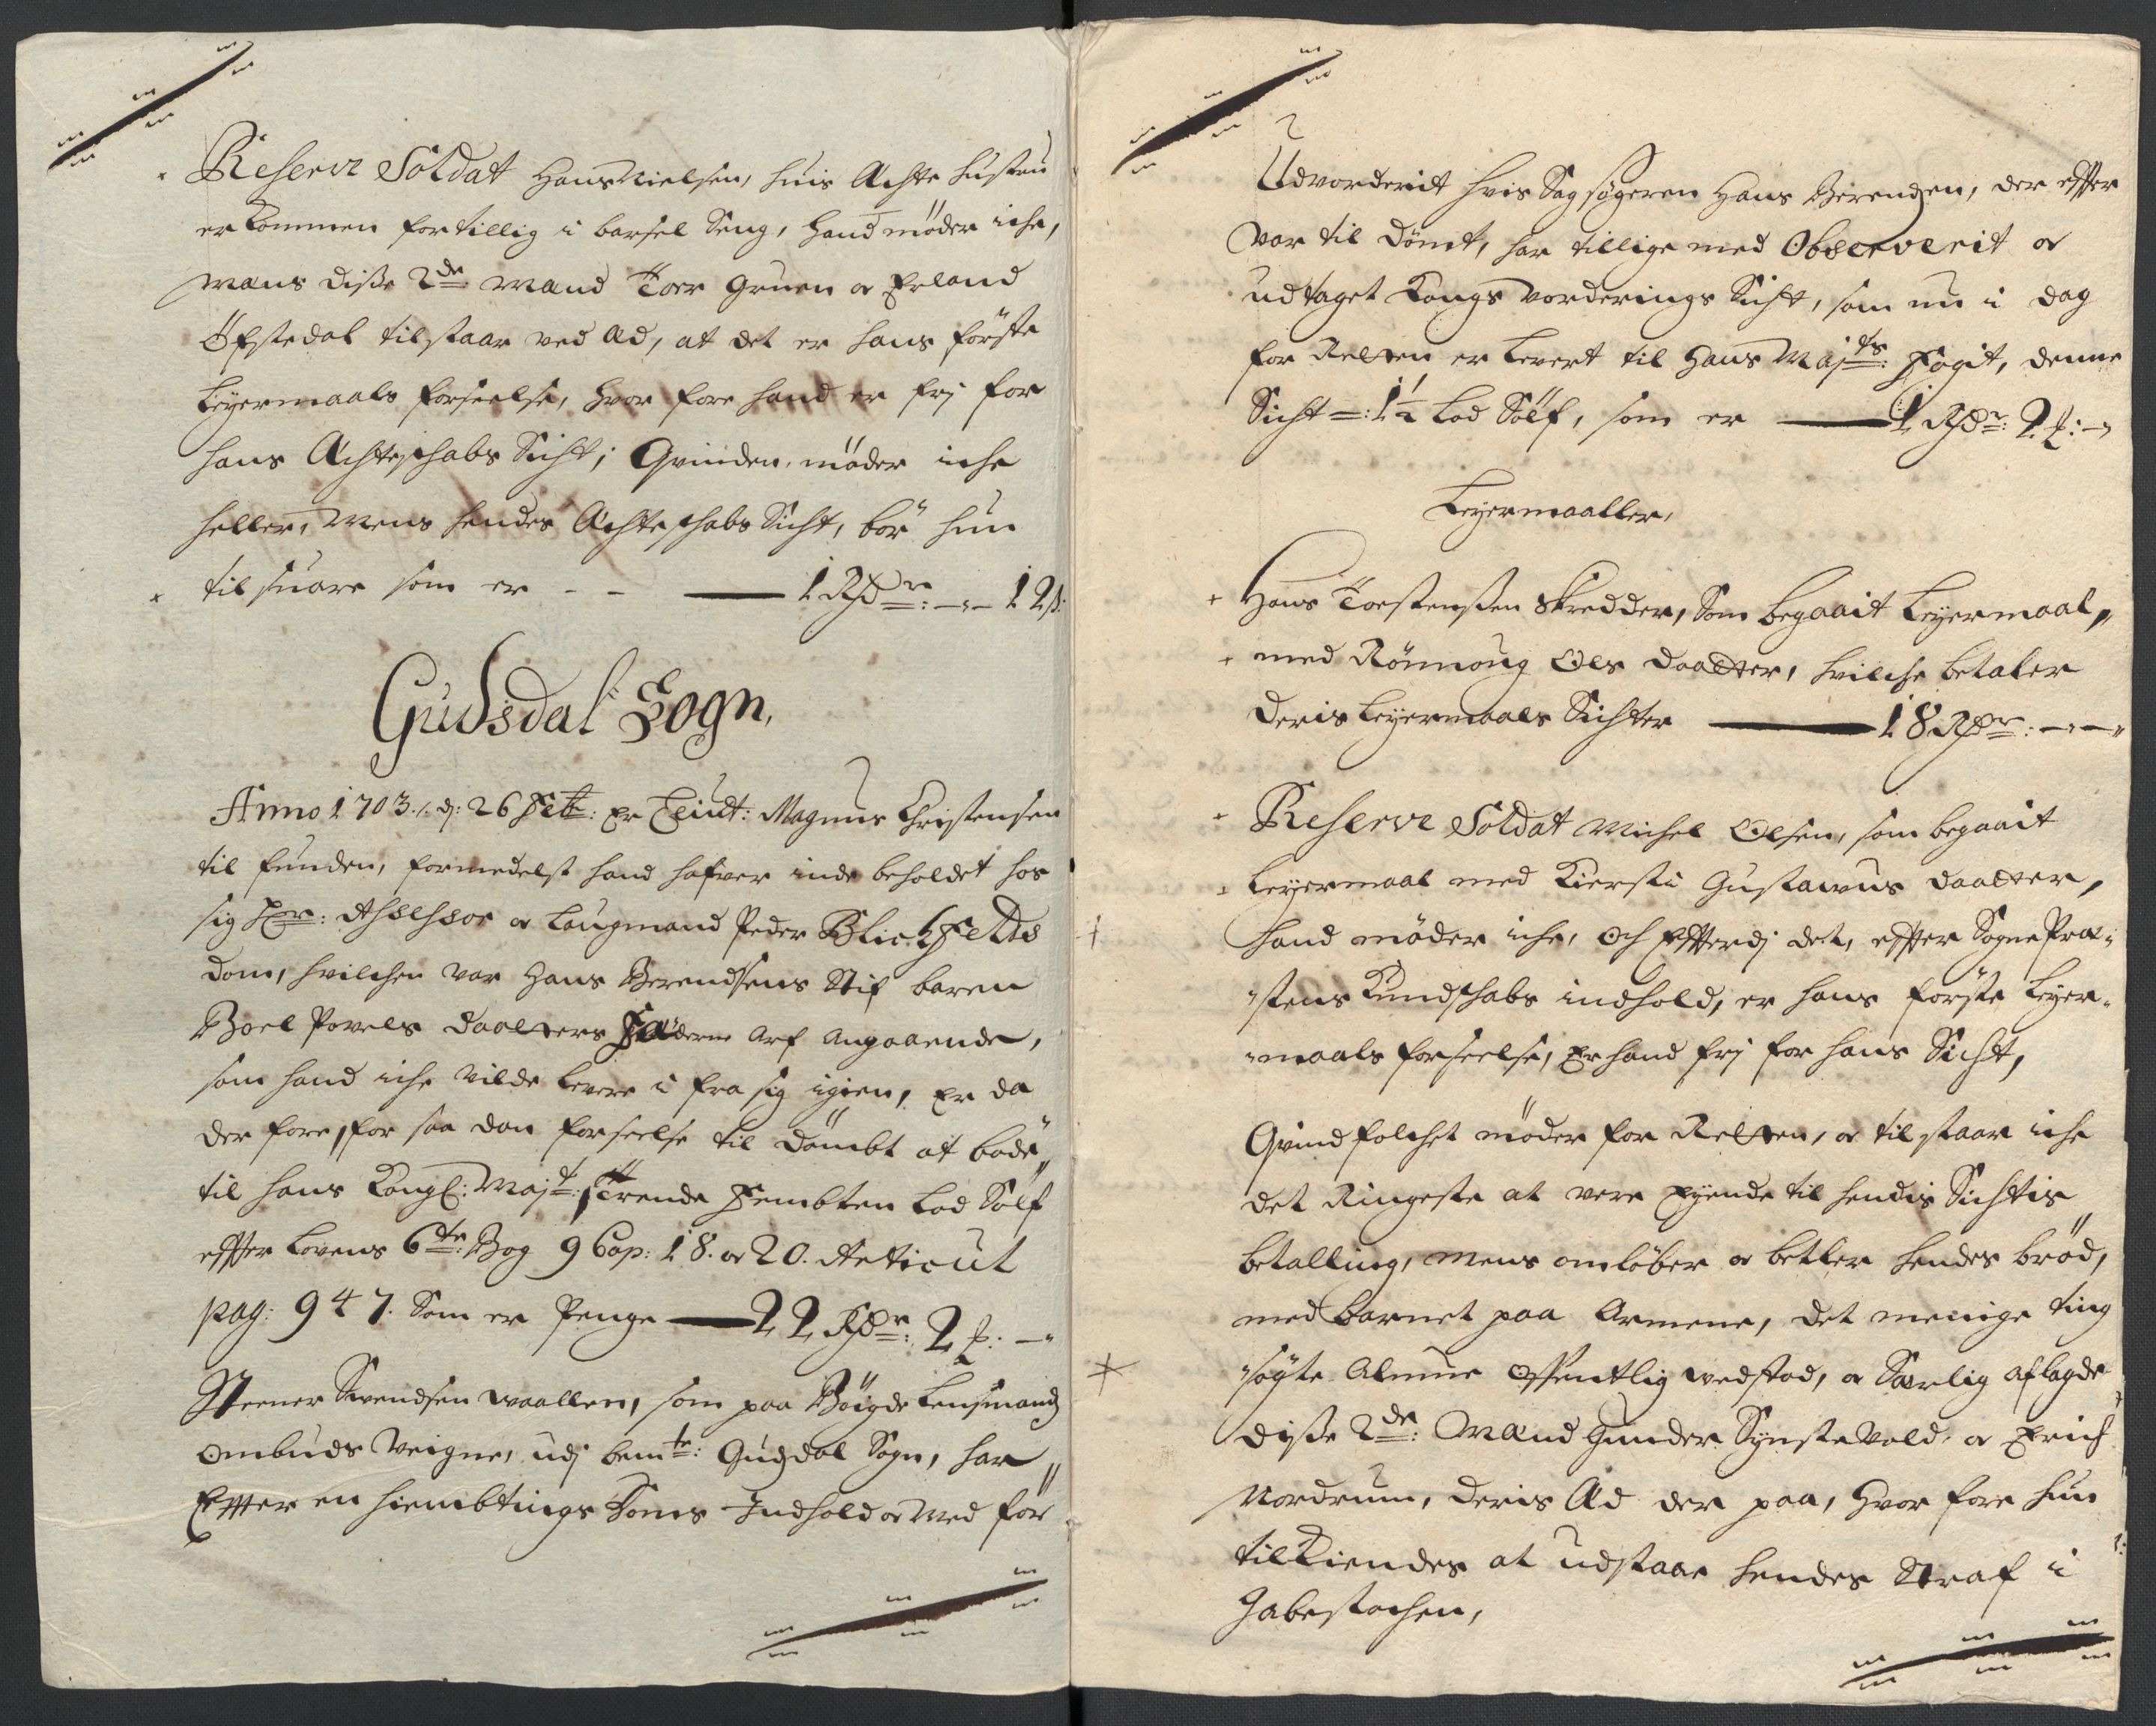 Reserve Soldat Hans Nielsen, huis Achte hustru
er kommen for tillig i barsel Seng, hand møder iche,
mens disse 2de Mænd Toer Gruen oc Erland
Øfstedal tilstaar ved æd, at det er hans første
Leyermaals forseelse, hvor fore hand er frj for
hans Achteschabs Sicht; Qvinden møder iche
heller, Mens hendes Achteschabs Sicht, bør hun
til suare som er - - 1 Rdr: - 12 s:
Gudsdal Sogn,
Anno 1703. d: 26 Er Leiut: Magnus Christensen
til funden, formedelst hand hafver inde beholdet hos
sig Hr: Assessor oc Laugmand Peder Blichfeldts
dom, hvilchen var Hans Berendsens Stif baren
Boel Povels daatters Fæderne Arf angaaende,
som hand iche vilde levere i fra sig igien, Er da
der fore, for saa dan forseelse til dømbt at bøde
til hans Kongl: Majt: Trende Fembten Lod Sølf
effter Lovens 6te: Bog 9 Cap: 18. oc 20. Articul
pag: 947. Som er Penge 22 Rdr: 2 : -
Steener Svendsen Waallen, som paa Bøigde Lensmands
Ombuds Veigne, udj bemte: Gudzdal Sogn, har
Effter en hiembtings doms Indhold oc Med før
Udvorderit hvis Sagsøgeren Hans Berendzen, der effter
var til dømt, har tillige med Observerit oc
udtaget Kongs vorderings Sicht, som nu i dag
for Retten er Levert til Hans Majts: Fogit, denne
Sicht =: 1½ Lod Sølf, som er 1 Rdr: 2 : -
Leyermaaller,
Hans Torstensen Skredder, Som begaait Leyermaal,
med Rønnoug Ols daatter, hvilche betaler
deris Leyermaals Sichter 18 Rdr: - -
Reserve Soldat Michel Olsen, som begaait
Leyermaal med Kiersti Gustavus daatter,
hand møder iche, och Effterdj det, effter Sogne Præ-
stens Kundschabs indhold, er hans første Leyer-
maals forseelse, Er hand frj for hans Sicht,
Qvindfolchet møder for Retten, oc tilstaar iche
det Ringeste at vere Eyende til hendis Sichtis
betalling, mens omløber oc betler hendes brød,
med barnet paa Armene, det menige ting
søgte Almue offentlig vedstod, oc Særlig aflagde
disse 2de: Mænd Gunder Synstevold, oc Erich
Nordrum, deris Æd der paa, hvor fore hun
tilkiendes at udstaae hendes Straf i
Gabestochen,